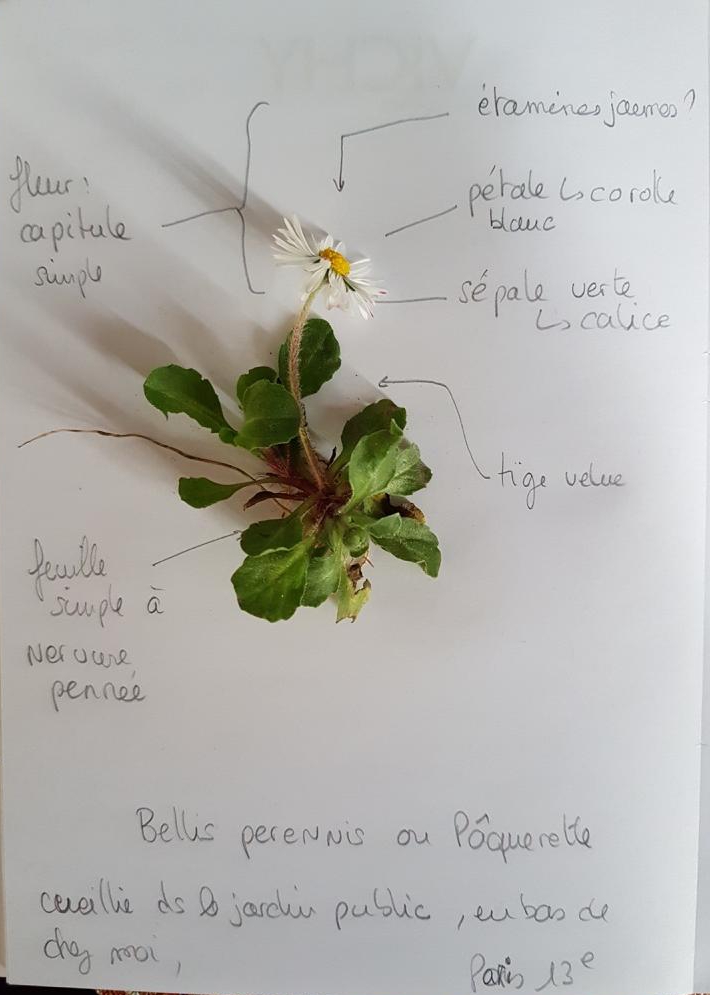 VICHY
étamines jaunes?
fleur:
capitule
simple
pétale ↳ corolle
blanc
sépale verte
↳ calice
tige velue
feuille
simple à
nervure
pennée
Bellis perennis ou Pâquerette
cueillie ds le jardin public, en bas de
chez moi,
Paris 13e